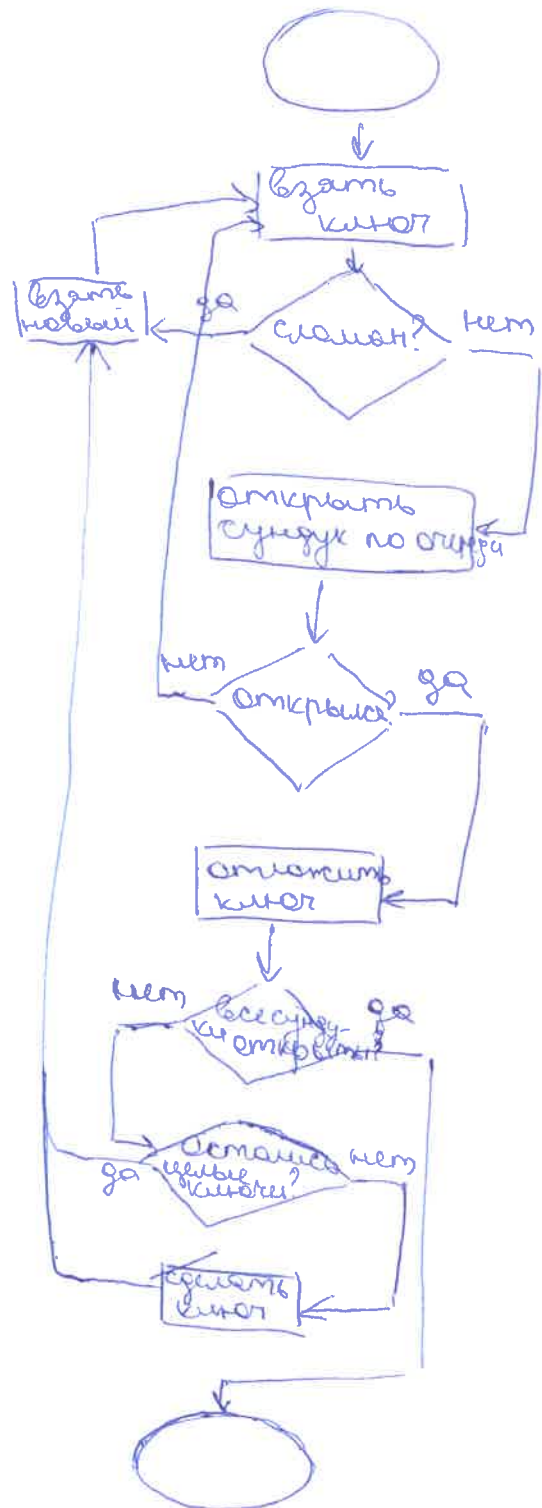 взять
ключ
взять
новый
да
сломан?
нет
открыть
сундук по очереди
нет
открылся?
да
отложить
ключ
нет
все сунду-
ки открыты?
да
да
остались
целые
ключи?
нет
сделать
ключ